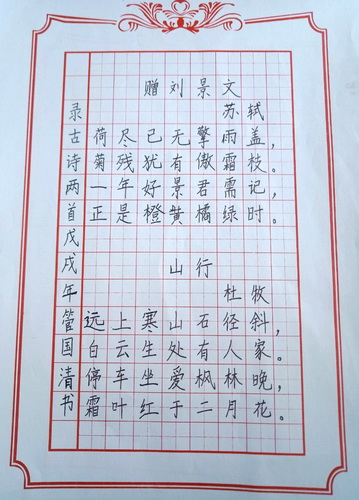 赠刘景文
苏轼
荷尽已无擎雨盖，
菊残犹有傲霜枝。
一年好景君需记，
正是橙黄橘绿时。
山行
杜牧
远上寒山石径斜，
白云生处有人家。
停车坐爱枫林晚，
霜叶红于二月花。
录古诗两首戊戌年管国清书